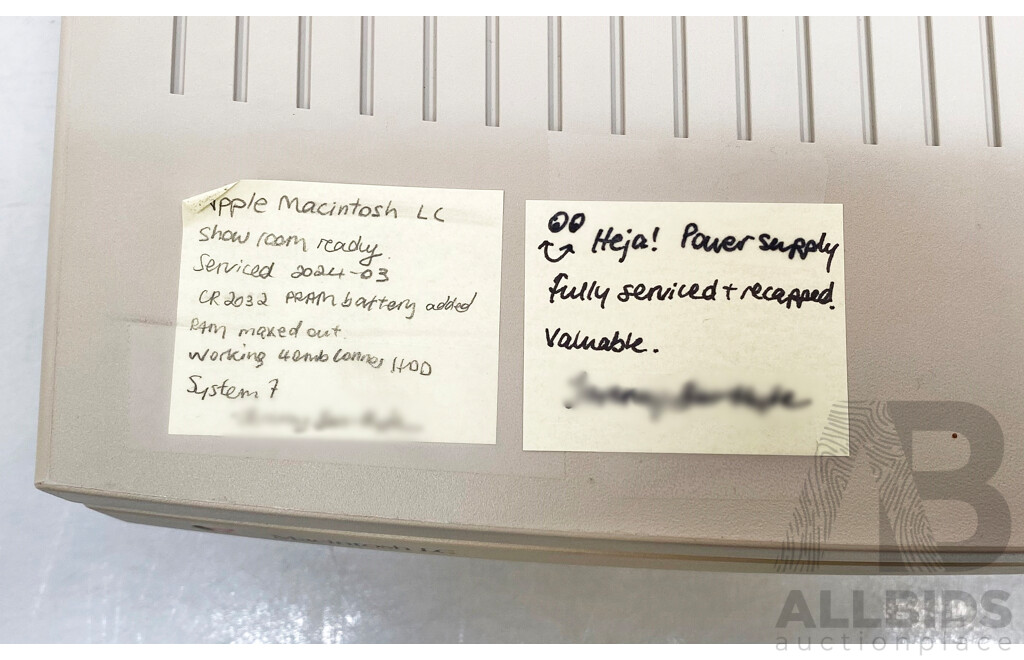 Apple Macintosh LC
Show room ready.
Serviced 2024-03
CR2032 PRAM battery added
RAM maxed out.
Working 40mb Conner HDD
System 7
Heja! Power supply
fully serviced + recapped.
Valuable.
Macintosh LC
AB
ALLBIDS
auctionplace